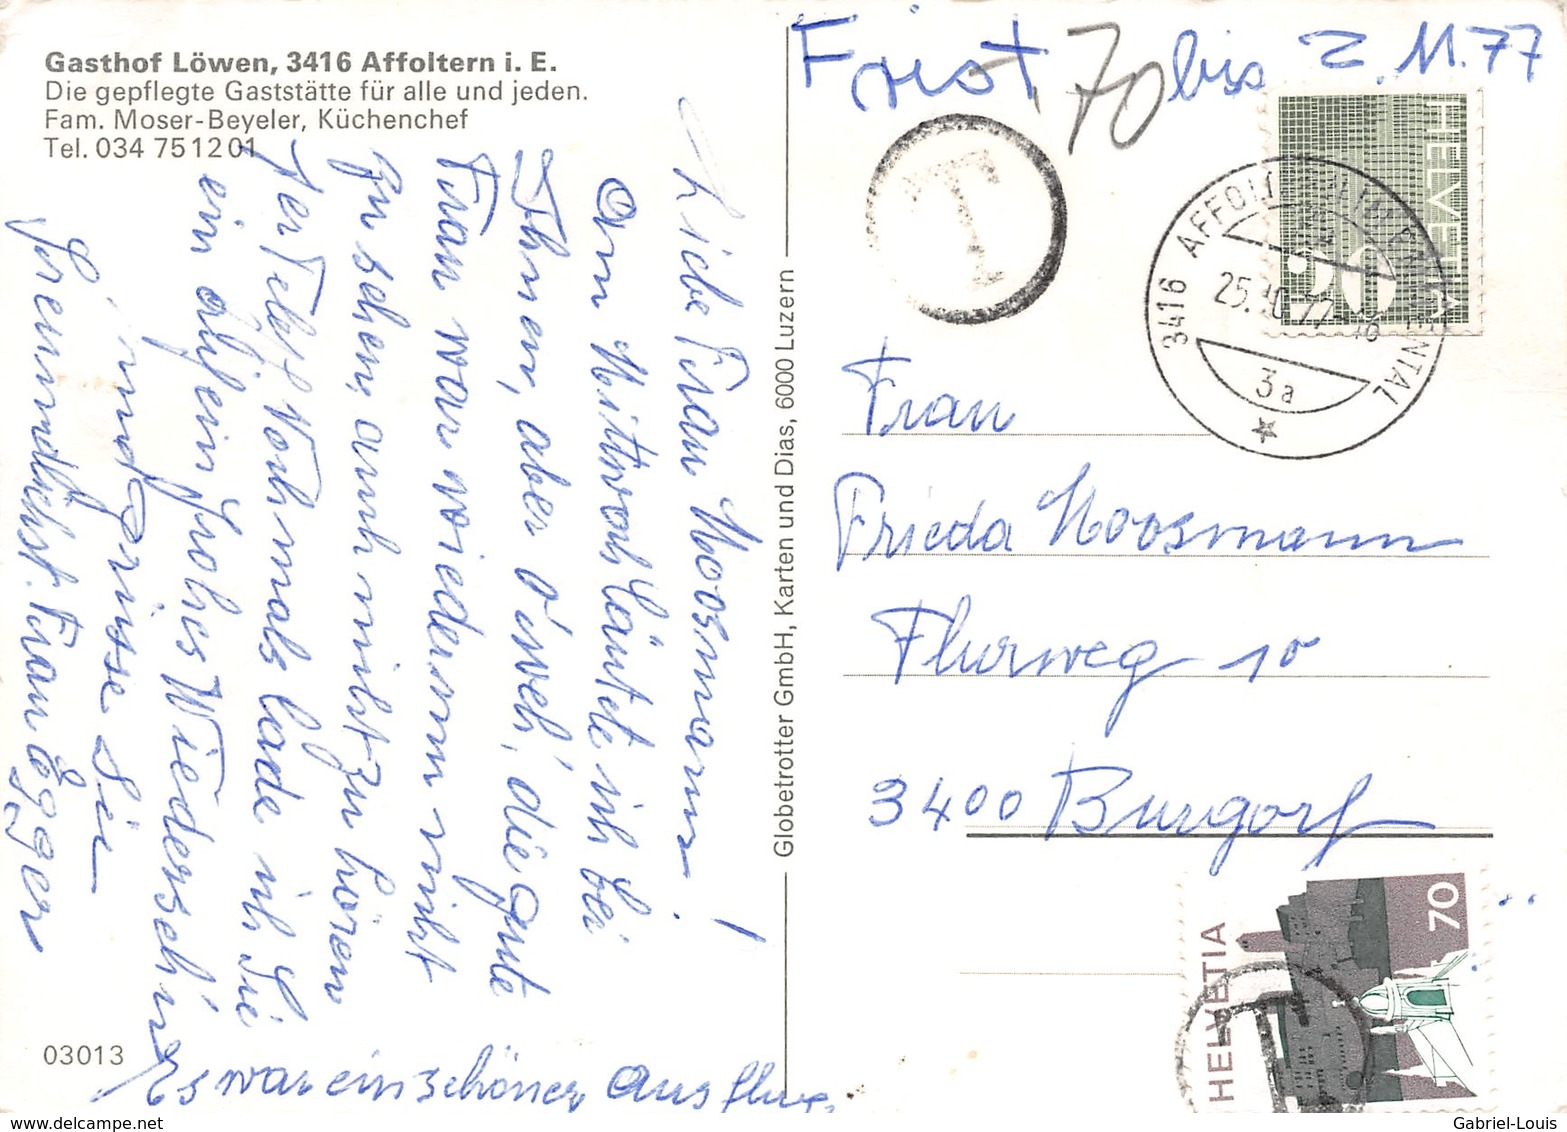 Gasthof Löwen, 3416 Affoltern i. E.
Die gepflegte Gaststätte für alle und jeden.
Fam. Moser-Beyeler, Küchenchef
Tel. 034 75 12 01
Liebe Frau Moosmann!
Am Mittwoch läutete ich bei
Ihnen, aber o weh, die gute
Frau war wiederum nicht
zu sehen, auch nicht zu hören
per Telef. Nochmals lade ich Sie
ein auf ein frohes Wiedersehn
und Grüsse Sie
freundlichst. Frau Egger
Es war ein schöner Ausflug
03013
Globetrotter GmbH, Karten und Dias, 6000 Luzern
Frist bis 2.11.77
70
T
HELVETIA
3416 AFFOLTERN IM EMMENTAL
25.10.77
3a
Frau
Frieda Moosmann
Flurweg 10
3400 Burgdorf
HELVETIA
70
www.delcampe.net
Gabriel-Louis